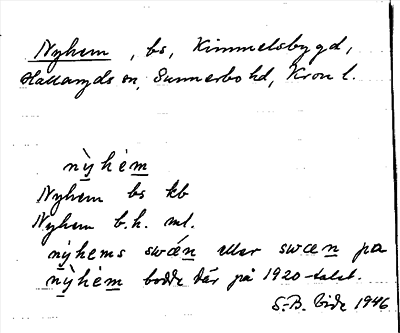 Nyhem, bs, Kimmelsbygd,
Hallaryds sn, Sunnerbo hd, Kron l.
nỳhèm
Nyhem bs kb
Nyhem b.h. ml.
nýhems swǽn eller swæn pa
nỳhèm bodde där på 1920-talet.
S.-B. 1946